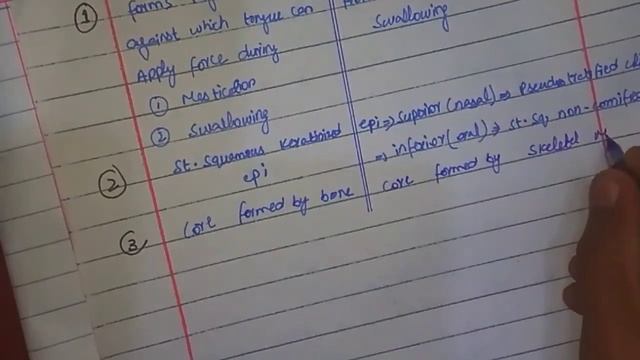 ① forms
against which tongue can
Apply force during
① Mastication
② Swallowing
Swallowing
② St. squamous Keratinized
epi
epi ⇒ superior (nasal) ⇒ Pseudostratified
⇒ inferior (oral) ⇒ st. sq. non-
③ core formed by bone
core formed by skeletal